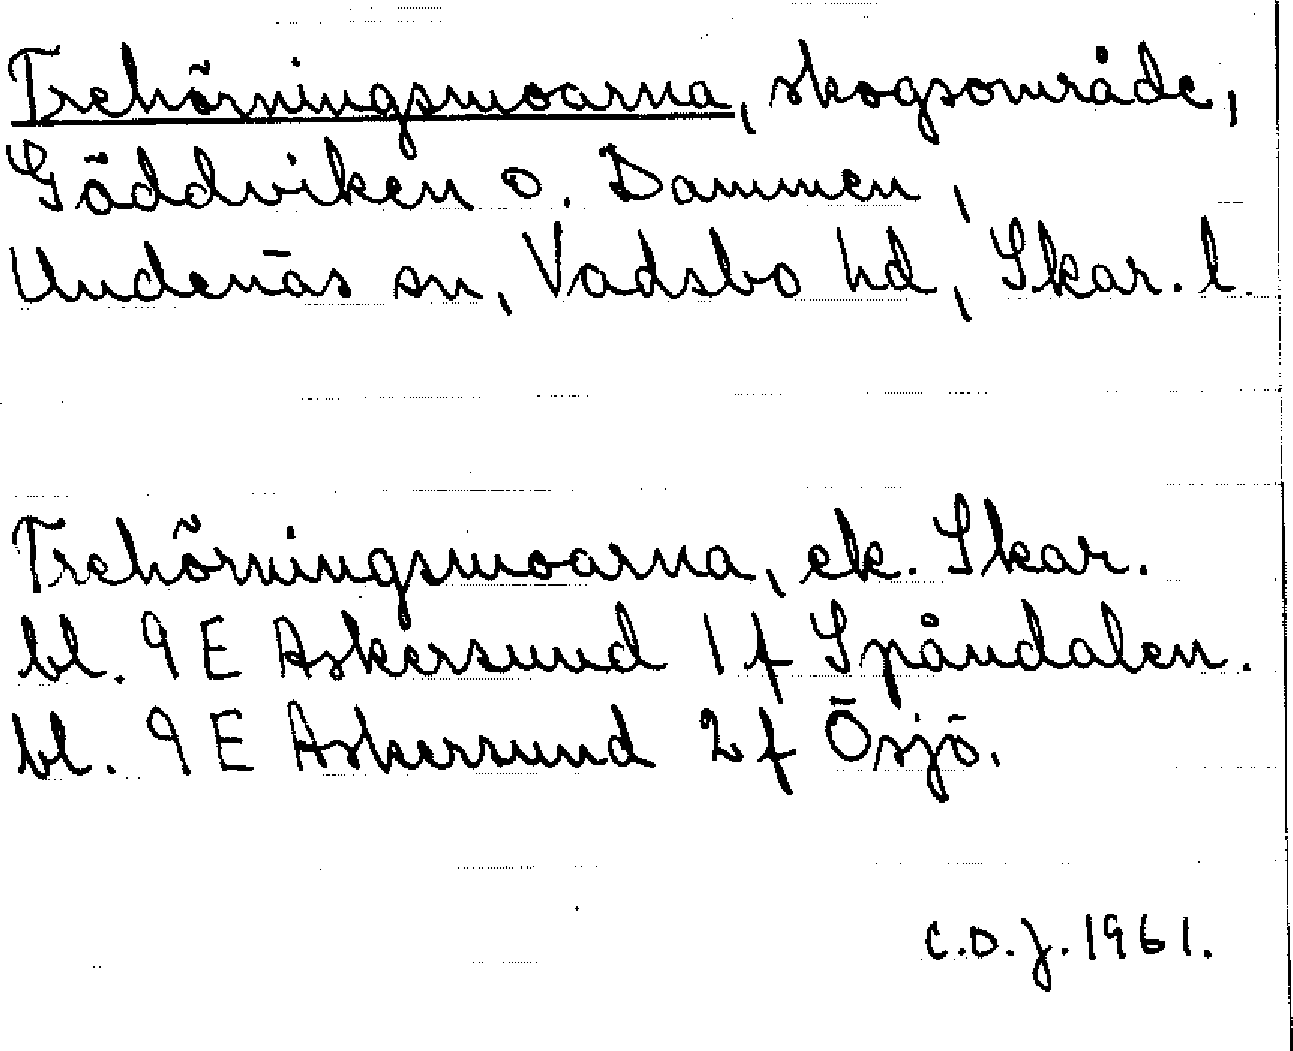 Trehörningsmoarna, skogsområde,
Gäddviken o. Dammen,
Undenäs sn, Vadsbo hd, Skar. l.
Trehörningsmoarna, ek. Skar.
bl. 9 E Askersund 1 f Spåndalen.
bl. 9 E Askersund 2 f Ösjö.
C.O.J. 1961.